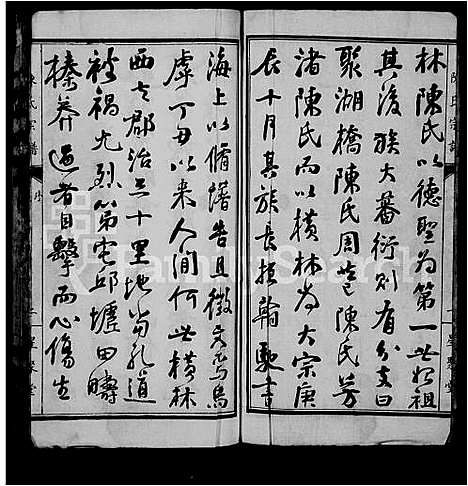 林陳氏以德聖為第一世始祖
其後族大蕃衍則有分支曰
聚湖橋陳氏周巷陳氏芳
渚陳氏而以橫林為大宗庚
辰十月其族長振翰馳書
海上以脩譜告且徵文焉烏
虖丁丑以來人間何世橫林
西去郡治三十里地當孔道
被禍尤烈第宅邱壟田疇
榛莽過者目擊而心傷生
陳氏宗譜
序
二
星聚堂
FamilySearch